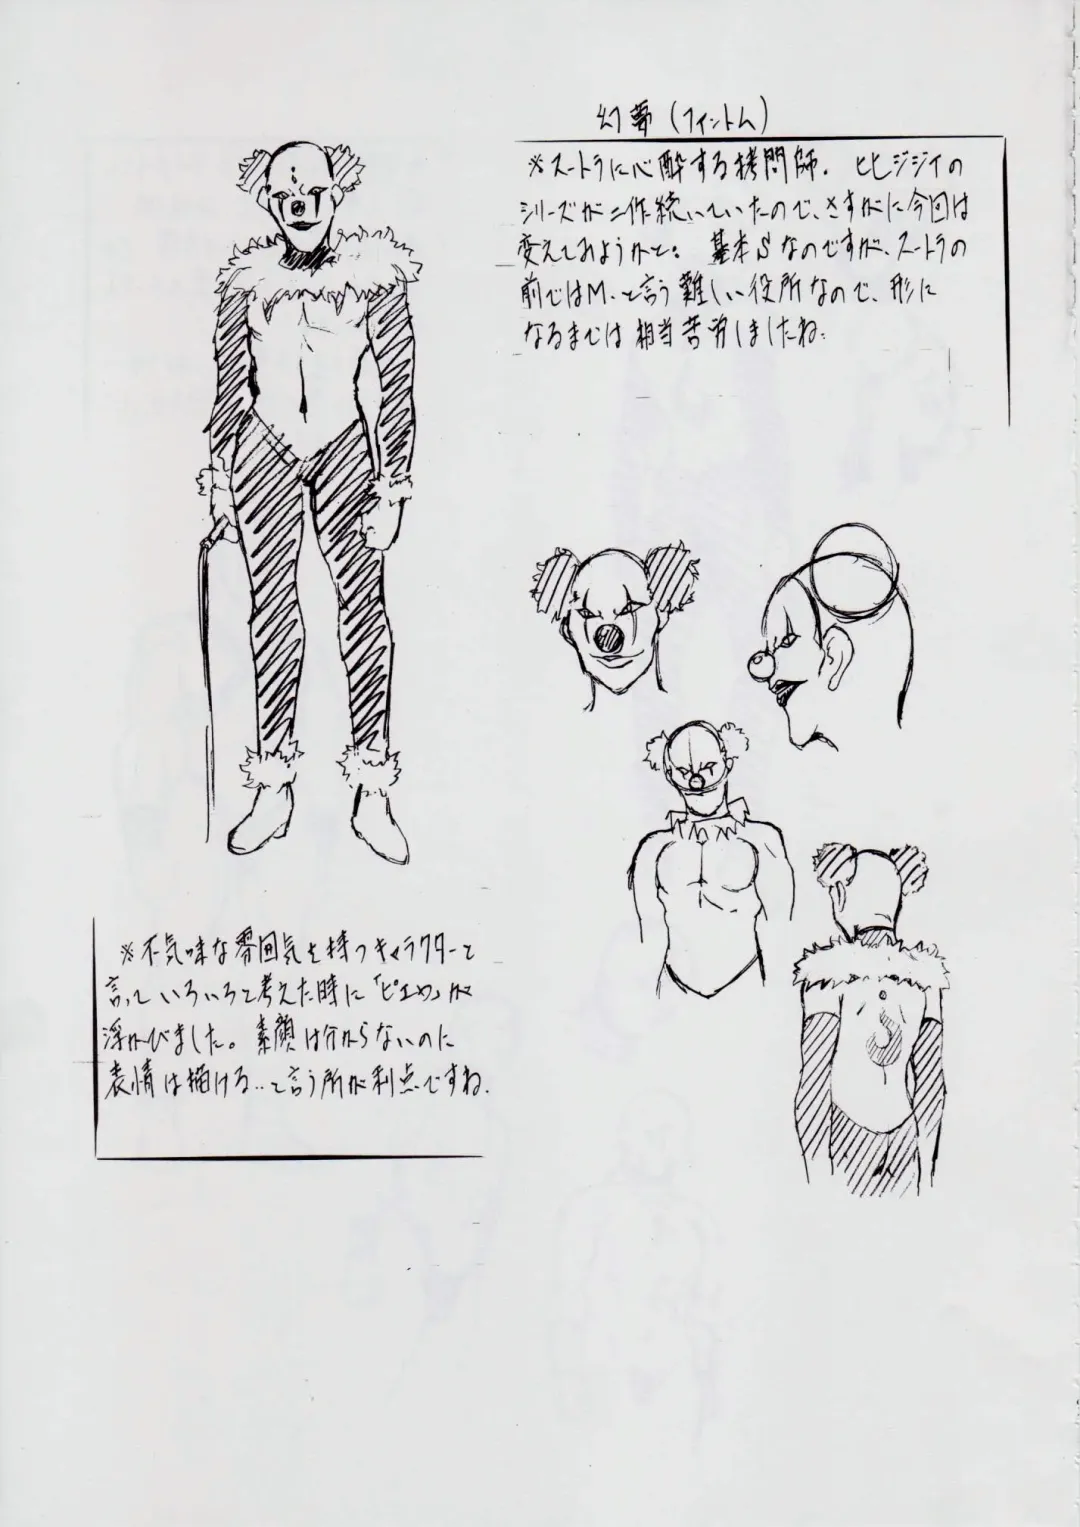 幻夢(ファントム)
※スートラに心酔する拷問師。ヒヒジジイの
シリーズが二作続いていたので、さすがに今回は
変えてみようかと。基本Sなのですが、スートラの
前ではM、と言う難しい役所なので、形に
なるまでは相当苦労しましたね。
※不気味な雰囲気を持つキャラクターと
言っていろいろと考えた時に「ピエロ」が
浮かびました。素顔は分からないのに
表情は描ける‥と言う所が利点ですね。